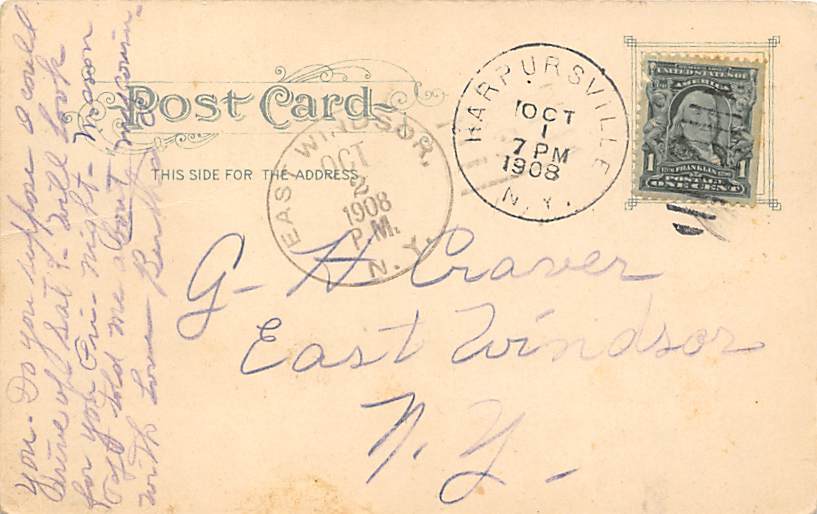 Post Card
THIS SIDE FOR THE ADDRESS
HARPURSVILLE
OCT
1
7 PM
1908
N.Y.
EAST WINDSOR,
OCT
2
1908
P.M.
N.Y.
UNITED STATES OF
AMERICA
1 FRANKLIN 1
POSTAGE
ONE CENT
G. H Craver
East Windsor
N. Y.
you. Do you suppose I could
drive of Sat? Will look
for you Fri- night- Mason
told me about
with love Bertha